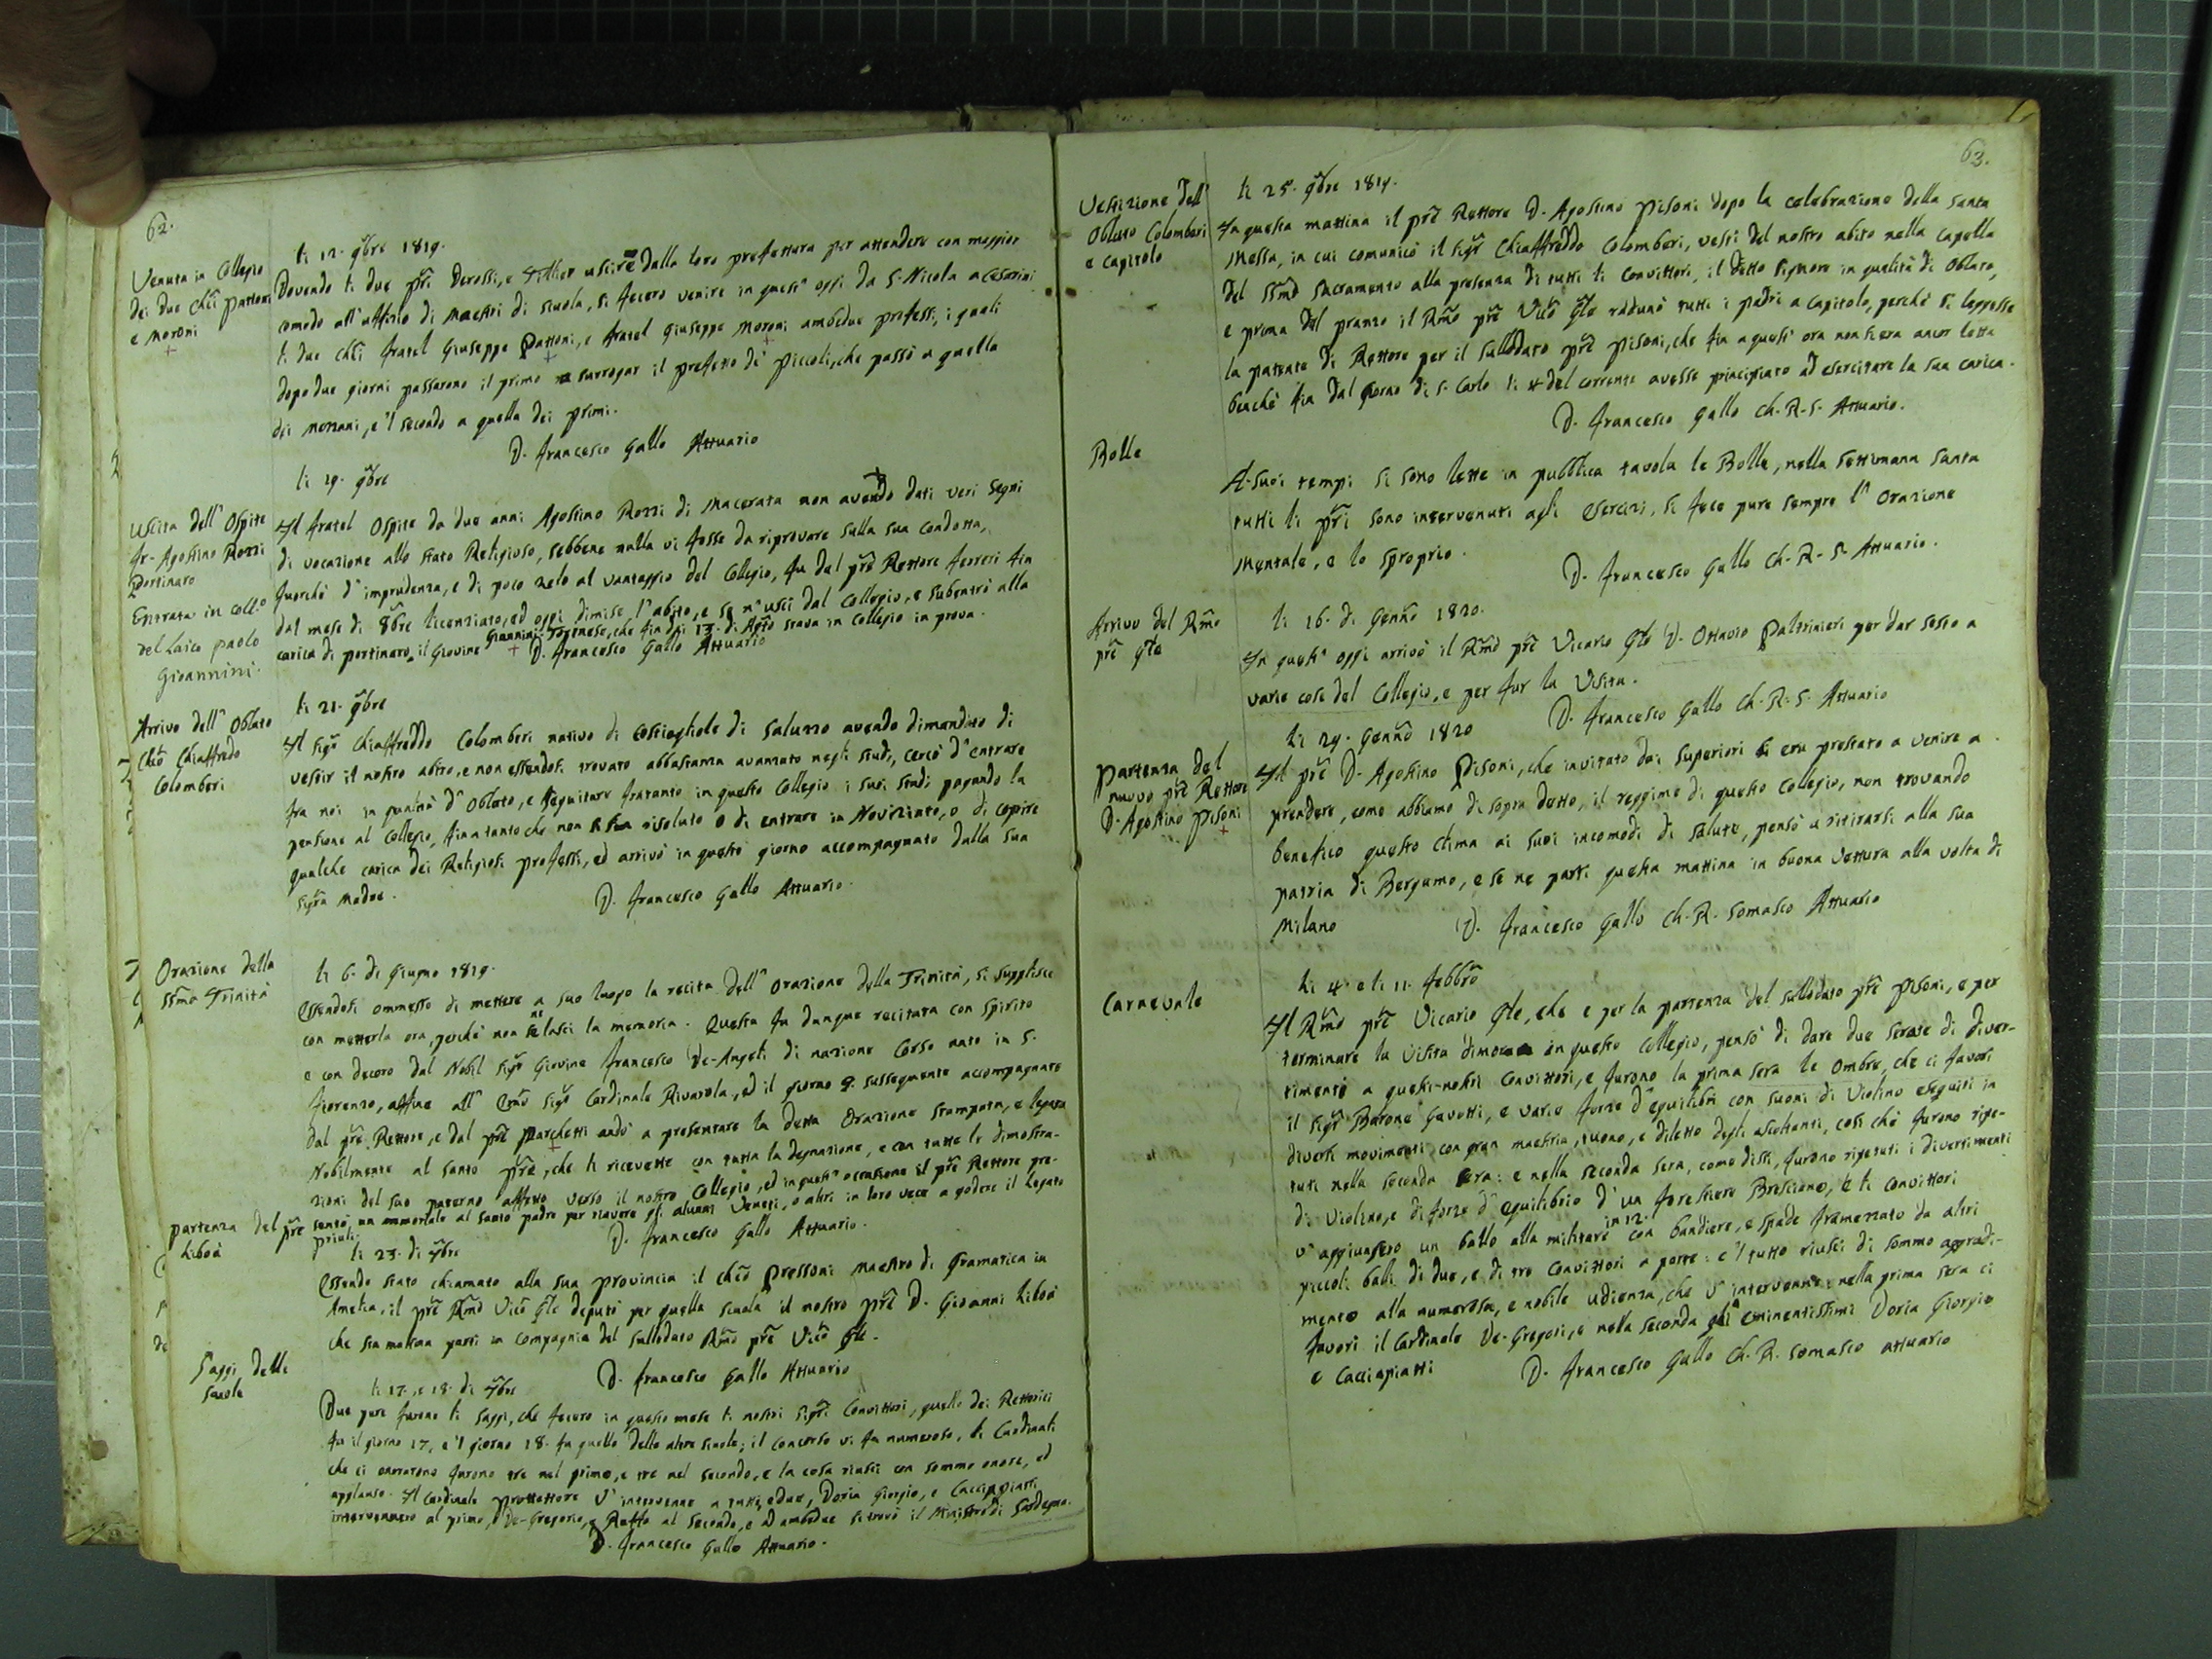 62.
Venuta in Collegio
dei due Chci Pattoni
e Moroni
li 12. 9bre 1819.
Dovendo li due Pri Derossi, e uscire dalla loro prefettura per attendere con maggior
comodo all'uffizio di Maestri di scuola, si fecero venire in quest' oggi da S. Nicola a Cesarini
li due Chci fratel Giuseppe Pattoni, e fratel Giuseppe Moroni ambedue professi, i quali
dopo due giorni passarono il primo a surrogar il prefetto de' piccoli, che passò a quella
dei mezzani, e 'l secondo a quella dei primi.
D. Francesco Gallo Attuario
Uscita dell' Ospite
Fr. Agostino Rozzi
Portinaro
Entrata in Coll.o
del Laico Paolo
Gioannini.
li 19. 9bre
Il fratel Ospite da due anni Agostino Rozzi di Macerata non avendo dati veri segni
di vocazione allo stato Religioso, sebbene nulla vi fosse da riprovare sulla sua condotta,
fuorchè d' imprudenza, e di poco zelo al vantaggio del Collegio, fu dal pre Rettore Ferreri fin
dal mese di 8bre licenziato, ed oggi dimise l' abito, e se n' uscì dal Collegio, e subentrò alla
carica di portinaro il Giovine Giannini Torinese, che fin di 13. di Agto stava in Collegio in prova.
D. Francesco Gallo Attuario
Arrivo dell' Oblato
Chco Chiaffredo
Colomberi
li 21. 9bre
Il Sigr Chiaffreddo Colomberi nativo di Costiogliole di Saluzzo avendo dimandato di
vestir il nostro abito, e non essendosi trovato abbastanza avanzato negli studi, cercò d' entrare
fra noi in qualità d' Oblato, e seguitare fratanto in questo Collegio i suoi studi pagando la
pensione al Collegio, fin a tanto che non si sia risoluto o di entrare in Noviziato, o di coprire
qualche carica dei Religiosi professi, ed arrivò in questo giorno accompagnato dalla sua
Sigra Madre.
D. Francesco Gallo Attuario.
Orazione della
SSma Trinità
li 6. di Giugno 1819.
Essendosi ommesso di mettere a suo luogo la recita dell' Orazione della Trinità, si supplisce
con metterla ora, perchè non se ne lasci la memoria. Questa fu dunque recitata con spirito
e con decoro dal Nobil Sigr Giovine Francesco De-Angeli di nazione Corso nato in S.
Fiorenzo, affine all' Emo Sigr Cardinale Rivarola, ed il giorno 9. susseguente accompagnato
dal pre Rettore, e dal pre Marchetti andò a presentare la detta Orazione stampata, e legata
Nobilmente al Santo Pre, che li ricevette con tutta la degnazione, e con tutte le dimostra-
zioni del suo paterno affetto verso il nostro Collegio, ed in quest' occasione il pre Rettore pre-
sentò un memoriale al Santo padre per riavere gli alunni Veneti, o altri in loro vece a godere il Legato
Priuli.
D. Francesco Gallo Attuario.
Partenza del Pre
Liboà
li 23. di 7bre
Essendo stato chiamato alla sua Provincia il Chco Pressoni Maestro di Gramatica in
Amelia, il pre Rmo Vico Gle deputò per quella scuola il nostro pre D. Gioanni Liboà
che sta mattina partì in compagnia del sullodato Rmo pre Vico Gle.
D. Francesco Gallo Attuario
Saggi delle
Scuole
li 17. e 18. di 7bre
Due pure furono li saggi, che fecero in questo mese li nostri Sigri Convittori, quello dei Rettorici
fu il giorno 17, e 'l giorno 18. fu quello delle altre scuole; il concorso vi fu numeroso, li Cardinali
che ci onorarono furono tre nel primo, e tre nel secondo, e la cosa riuscì con sommo onore, ed
applauso. Il Cardinale Protettore v' intervenne a tutti e due, Doria Giorgio, e Cacciapiatti
intervennero al primo, De-Gregorio, e Ruffo al secondo, e ad ambedue si trovò il Ministro di Sardegna.
D. Francesco Gallo Attuario.
63.
Vestizione dell'
Oblato Colomberi
e capitolo
li 25. 9bre 1819.
In questa mattina il pre Rettore D. Agostino Pisoni dopo la celebrazione della Santa
Messa, in cui comunicò il Sigr Chiaffreddo Colomberi, vestì del nostro abito nella Capella
del SSmo Sacramento alla presenza di tutti li Convittori, il detto Signore in qualità di Oblato,
e prima del pranzo il Rmo pre Vico Gle radunò tutti i Padri a Capitolo, perchè si leggesse
la patente di Rettore per il sullodato pre Pisoni, che fin a quest' ora non si era ancor letta
benchè fin dal giorno di S. Carlo li 4 del corrente avesse principiato ad esercitare la sua carica.
D. Francesco Gallo Ch. R. S. Attuario.
Bolle
A suoi tempi si sono lette in pubblica tavola le Bolle, nella settimana Santa
tutti li Pri sono intervenuti agli esercizi, si fece pure sempre l' Orazione
Mentale, e lo sproprio.
D. Francesco Gallo Ch. R. S. Attuario.
Arrivo del Rmo
Pre Gle
li 16. di Gennro 1820.
In quest' oggi arrivò il Rmo pre Vicario Gle D. Ottavio Paltrinieri per dar sesto a
varie cose del Collegio, e per far la Visita.
D. Francesco Gallo Ch. R. S. Attuario
Partenza del
nuovo pre Rettore
D. Agostino Pisoni
Li 29. Gennro 1820
Il pre D. Agostino Pisoni, che invitato dai Superiori si era prestato a venire a
prendere, come abbiamo di sopra detto, il reggime di questo Collegio, non trovando
benefico questo clima ai suoi incomodi di salute, pensò a ritirarsi alla sua
patria di Bergamo, e se ne partì questa mattina in buona vettura alla volta di
Milano
D. Francesco Gallo Ch. R. Somasco Attuario
Carnevale
Li 4 e li 11. Febbro
Il Rmo pre Vicario Gle, che e per la partenza del sullodato pre Pisoni, e per
terminare la Visita dimora in questo Collegio, pensò di dare due serate di diver-
timento a questi nostri Convittori, e furono la prima sera le Ombre, che ci favorì
il Sigr Barone Gavotti, e varie forze d' equilibri con suoni di Violino eseguiti in
diversi movimenti con gran maestria, tuono, e diletto degli ascoltanti, così che furono ripe-
tuti nella seconda sera: e nella seconda sera, come dissi, furono ripetuti i divertimenti
di Violino, e di forze d' equilibrio d' un forestiero Bresciano, e li Convittori
v' aggiunsero un ballo alla militare in 12. con bandiere, e spade framezzato da altri
piccoli balli di due, e di tre Convittori a parte: e 'l tutto riuscì di sommo aggradi-
mento alla numerosa, e nobile udienza, che v' intervenne: nella prima sera ci
favorì il Cardinale De-Gregori, e nella seconda gli eminentissimi Doria Giorgio
e Cacciapiatti
D. Francesco Gallo Ch. R. Somasco Attuario